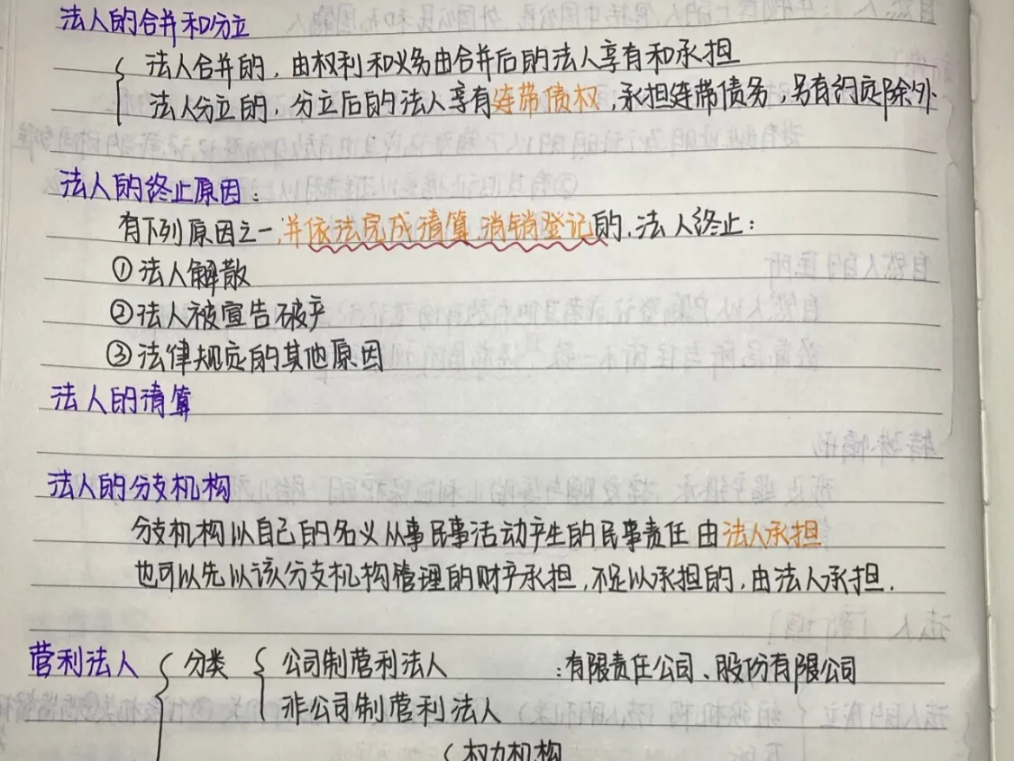 法人的合并和分立
法人合并的，由权利和义务由合并后的法人享有和承担
法人分立的，分立后的法人享有连带债权，承担连带债务，另有约定除外
法人的终止原因：
有下列原因之一，并依法完成清算、消销登记的，法人终止：
①法人解散
②法人被宣告破产
③法律规定的其他原因
法人的清算
法人的分支机构
分支机构以自己的名义从事民事活动产生的民事责任由法人承担
也可以先以该分支机构管理的财产承担，不足以承担的，由法人承担．
营利法人 { 分类 { 公司制营利法人 ：有限责任公司、股份有限公司
非公司制营利法人
{ 权力机构